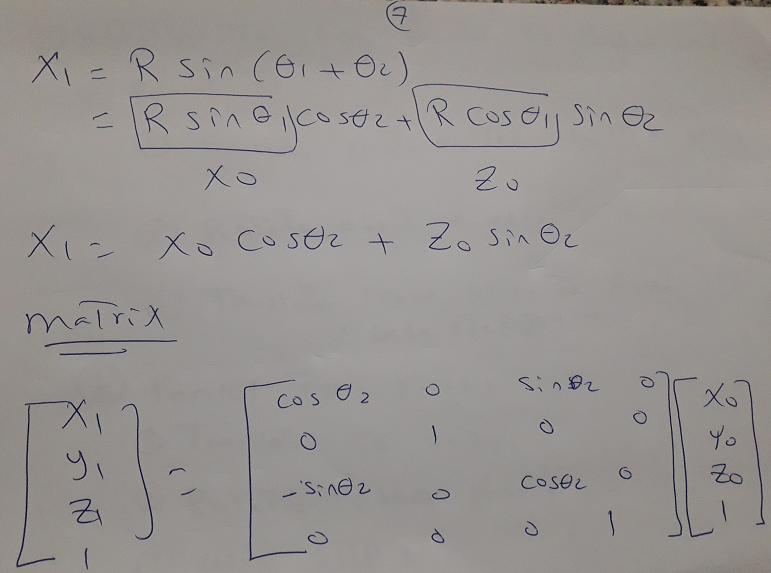 7
X1 = R sin (θ1 + θ2)
= R sinθ1 cosθ2 + R cosθ1 sinθ2
X0 Z0
X1 = X0 cosθ2 + Z0 sinθ2
matrix
[X1] = [cosθ2 0 sinθ2 0] [X0]
[y1] [0 1 0 0] [y0]
[Z1] [-sinθ2 0 cosθ2 0] [Z0]
[1] [0 0 0 1] [1]